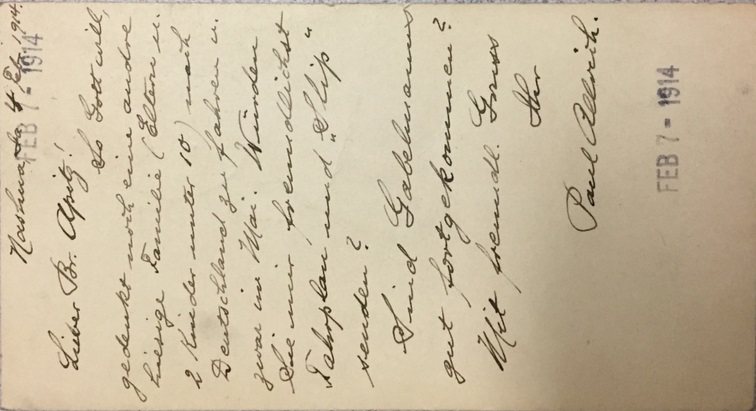 Nashua, Ia. 4 Febr. 1914.
FEB 7 - 1914
Lieber Br. Apitz!
So Gott will,
gedenkt noch eine andre
hiesige Familie (Eltern u.
2 Kinder unter 10) nach
Deutschland zu fahren u.
zwar im Mai. Würden
Sie mir freundlichst
Fahrplan und "Slip"
senden?
Sind Gabelmanns
gut fortgekommen?
Mit freundl. Gruss
Ihr
Paul
FEB 7 - 1914